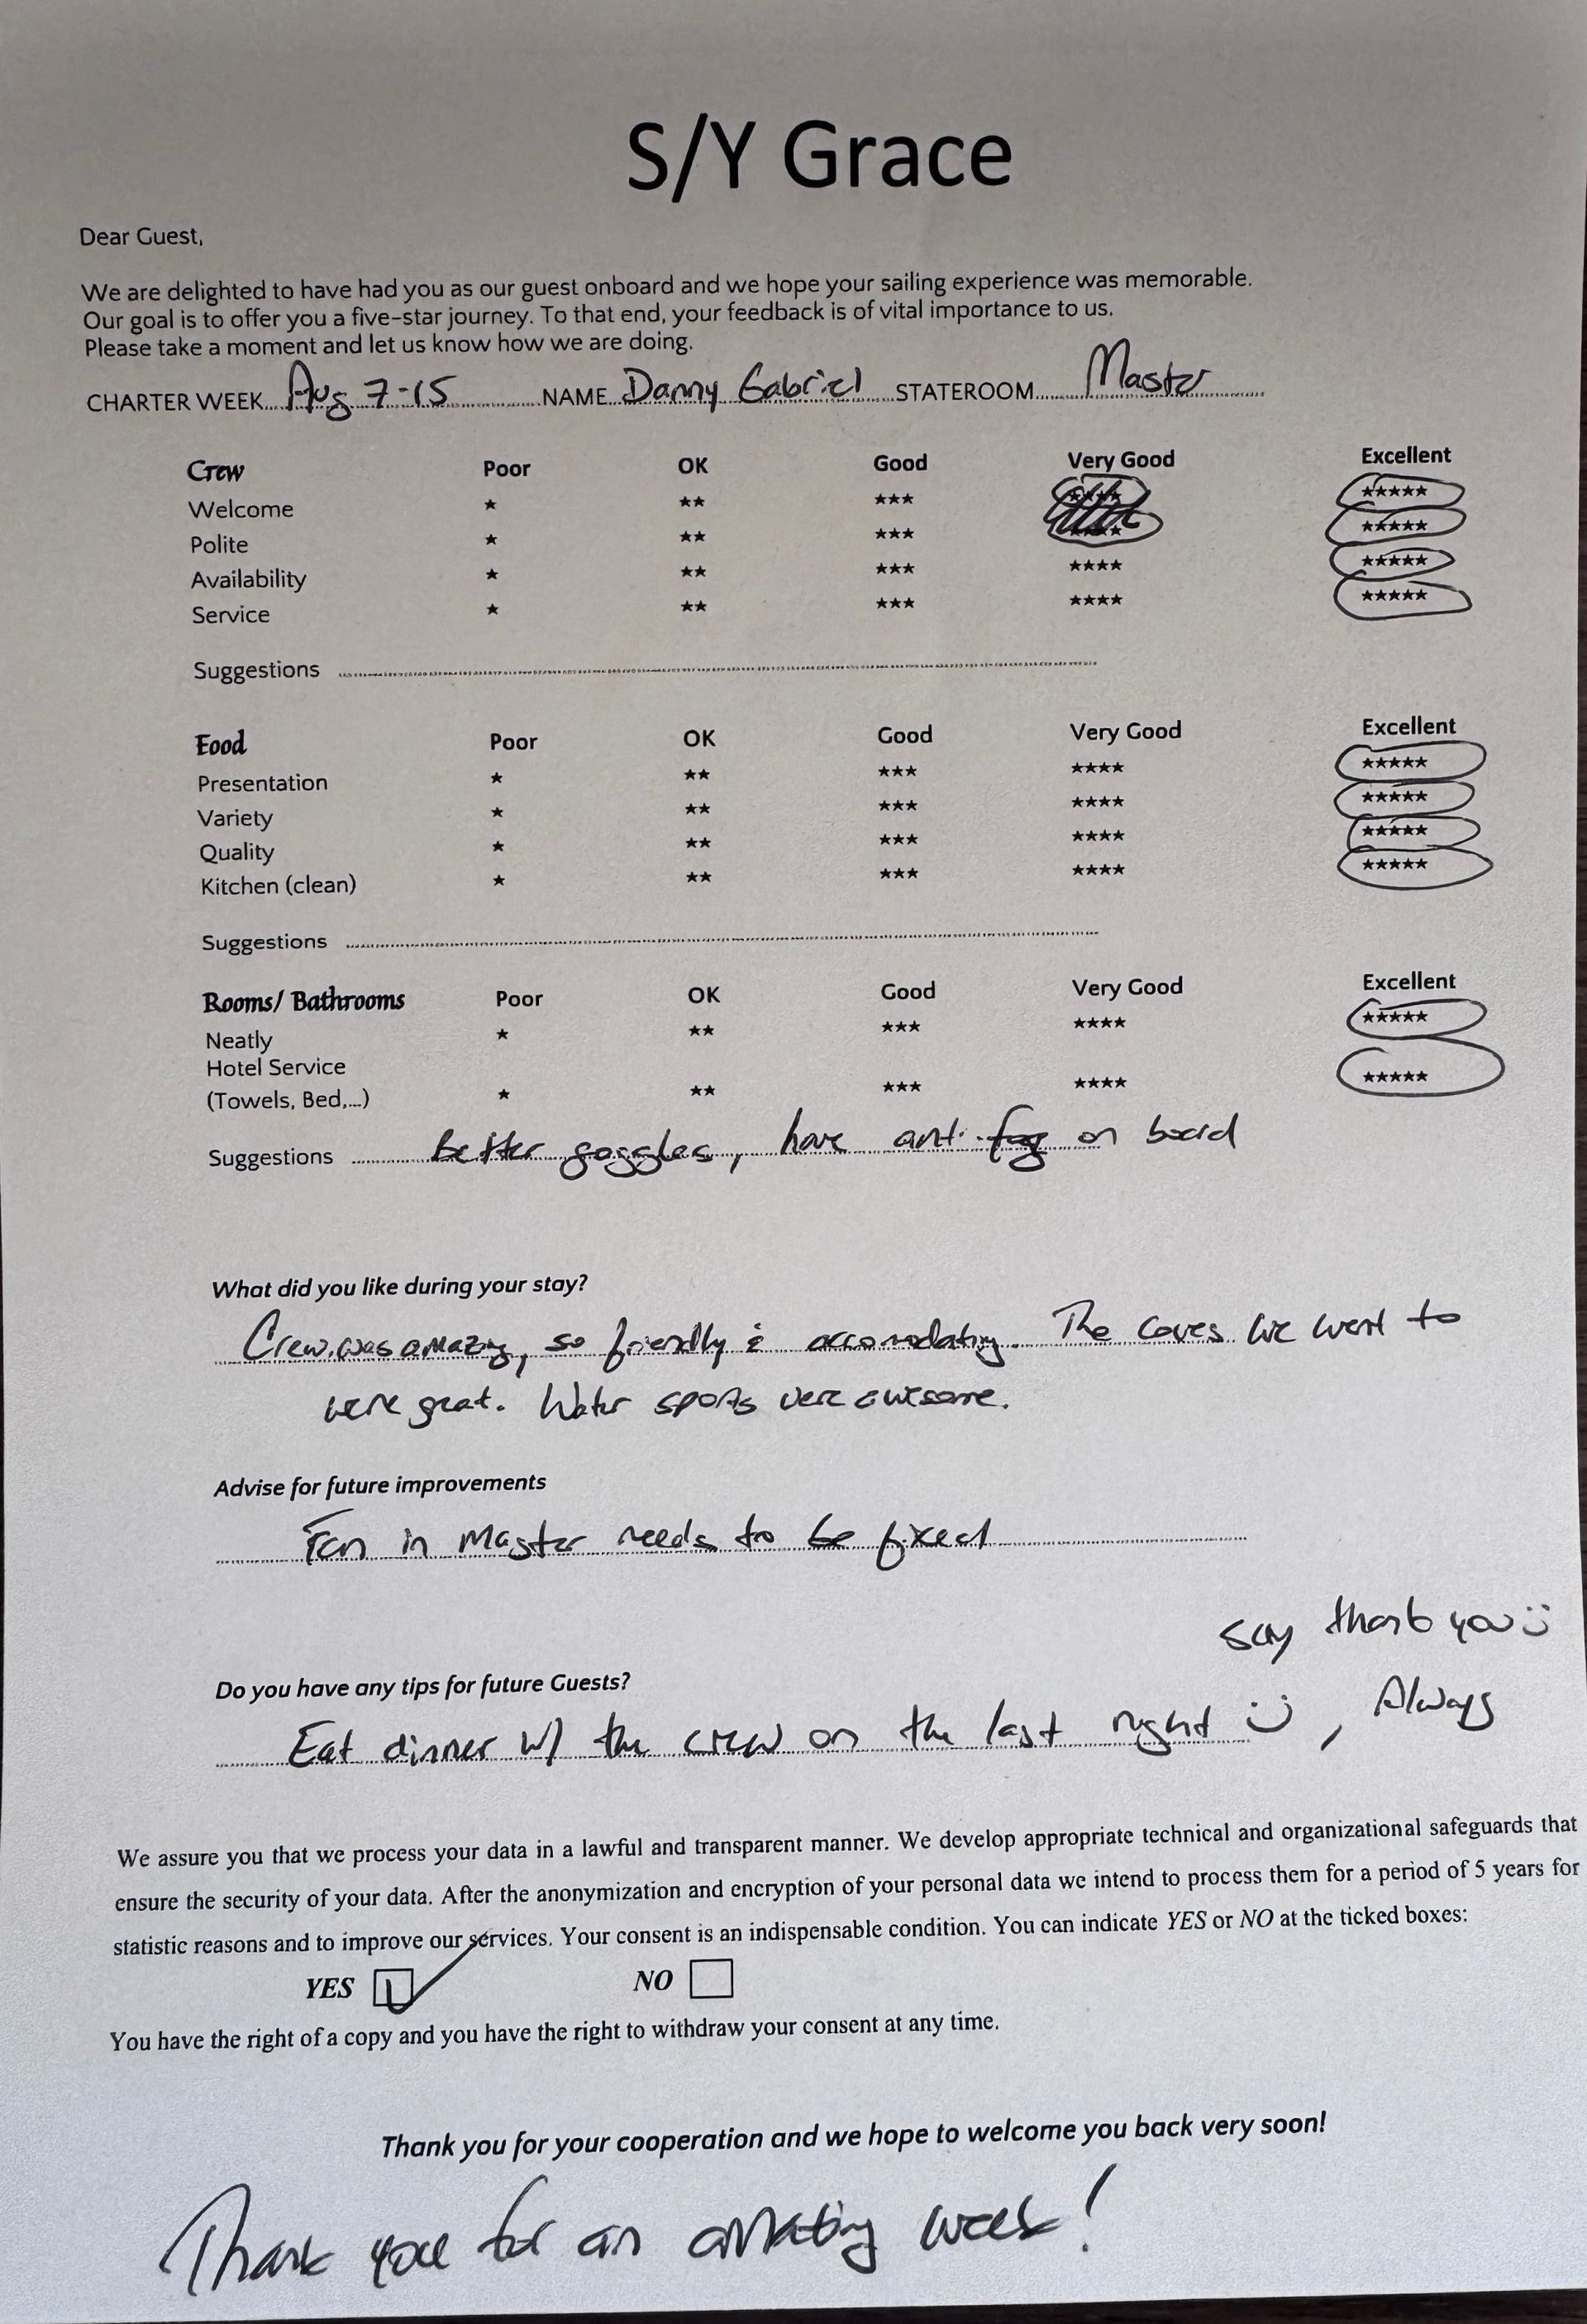 S/Y Grace
Dear Guest,
We are delighted to have had you as our guest onboard and we hope your sailing experience was memorable.
Our goal is to offer you a five-star journey. To that end, your feedback is of vital importance to us.
Please take a moment and let us know how we are doing.
CHARTER WEEK Aug 7-15 NAME Danny Gabriel STATEROOM Master
Crew Poor OK Good Very Good Excellent
Welcome ★ ★★ ★★★ ★★★★ ★★★★★
Polite ★ ★★ ★★★ ★★★★ ★★★★★
Availability ★ ★★ ★★★ ★★★★ ★★★★★
Service ★ ★★ ★★★ ★★★★ ★★★★★
Suggestions
Food Poor OK Good Very Good Excellent
Presentation ★ ★★ ★★★ ★★★★ ★★★★★
Variety ★ ★★ ★★★ ★★★★ ★★★★★
Quality ★ ★★ ★★★ ★★★★ ★★★★★
Kitchen (clean) ★ ★★ ★★★ ★★★★ ★★★★★
Suggestions
Rooms/ Bathrooms Poor OK Good Very Good Excellent
Neatly ★ ★★ ★★★ ★★★★ ★★★★★
Hotel Service
(Towels, Bed,...) ★ ★★ ★★★ ★★★★ ★★★★★
Suggestions Better goggles, have anti-fog on board
What did you like during your stay?
Crew was amazing, so friendly & accomodating. The coves we went to
were great. Water sports were awesome.
Advise for future improvements
Fan in Master needs to be fixed
Do you have any tips for future Guests?
Eat dinner w/ the crew on the last night :), Always
say thank you :)
We assure you that we process your data in a lawful and transparent manner. We develop appropriate technical and organizational safeguards that
ensure the security of your data. After the anonymization and encryption of your personal data we intend to process them for a period of 5 years for
statistic reasons and to improve our services. Your consent is an indispensable condition. You can indicate YES or NO at the ticked boxes:
YES NO
You have the right of a copy and you have the right to withdraw your consent at any time.
Thank you for your cooperation and we hope to welcome you back very soon!
Thank you for an amazing week!